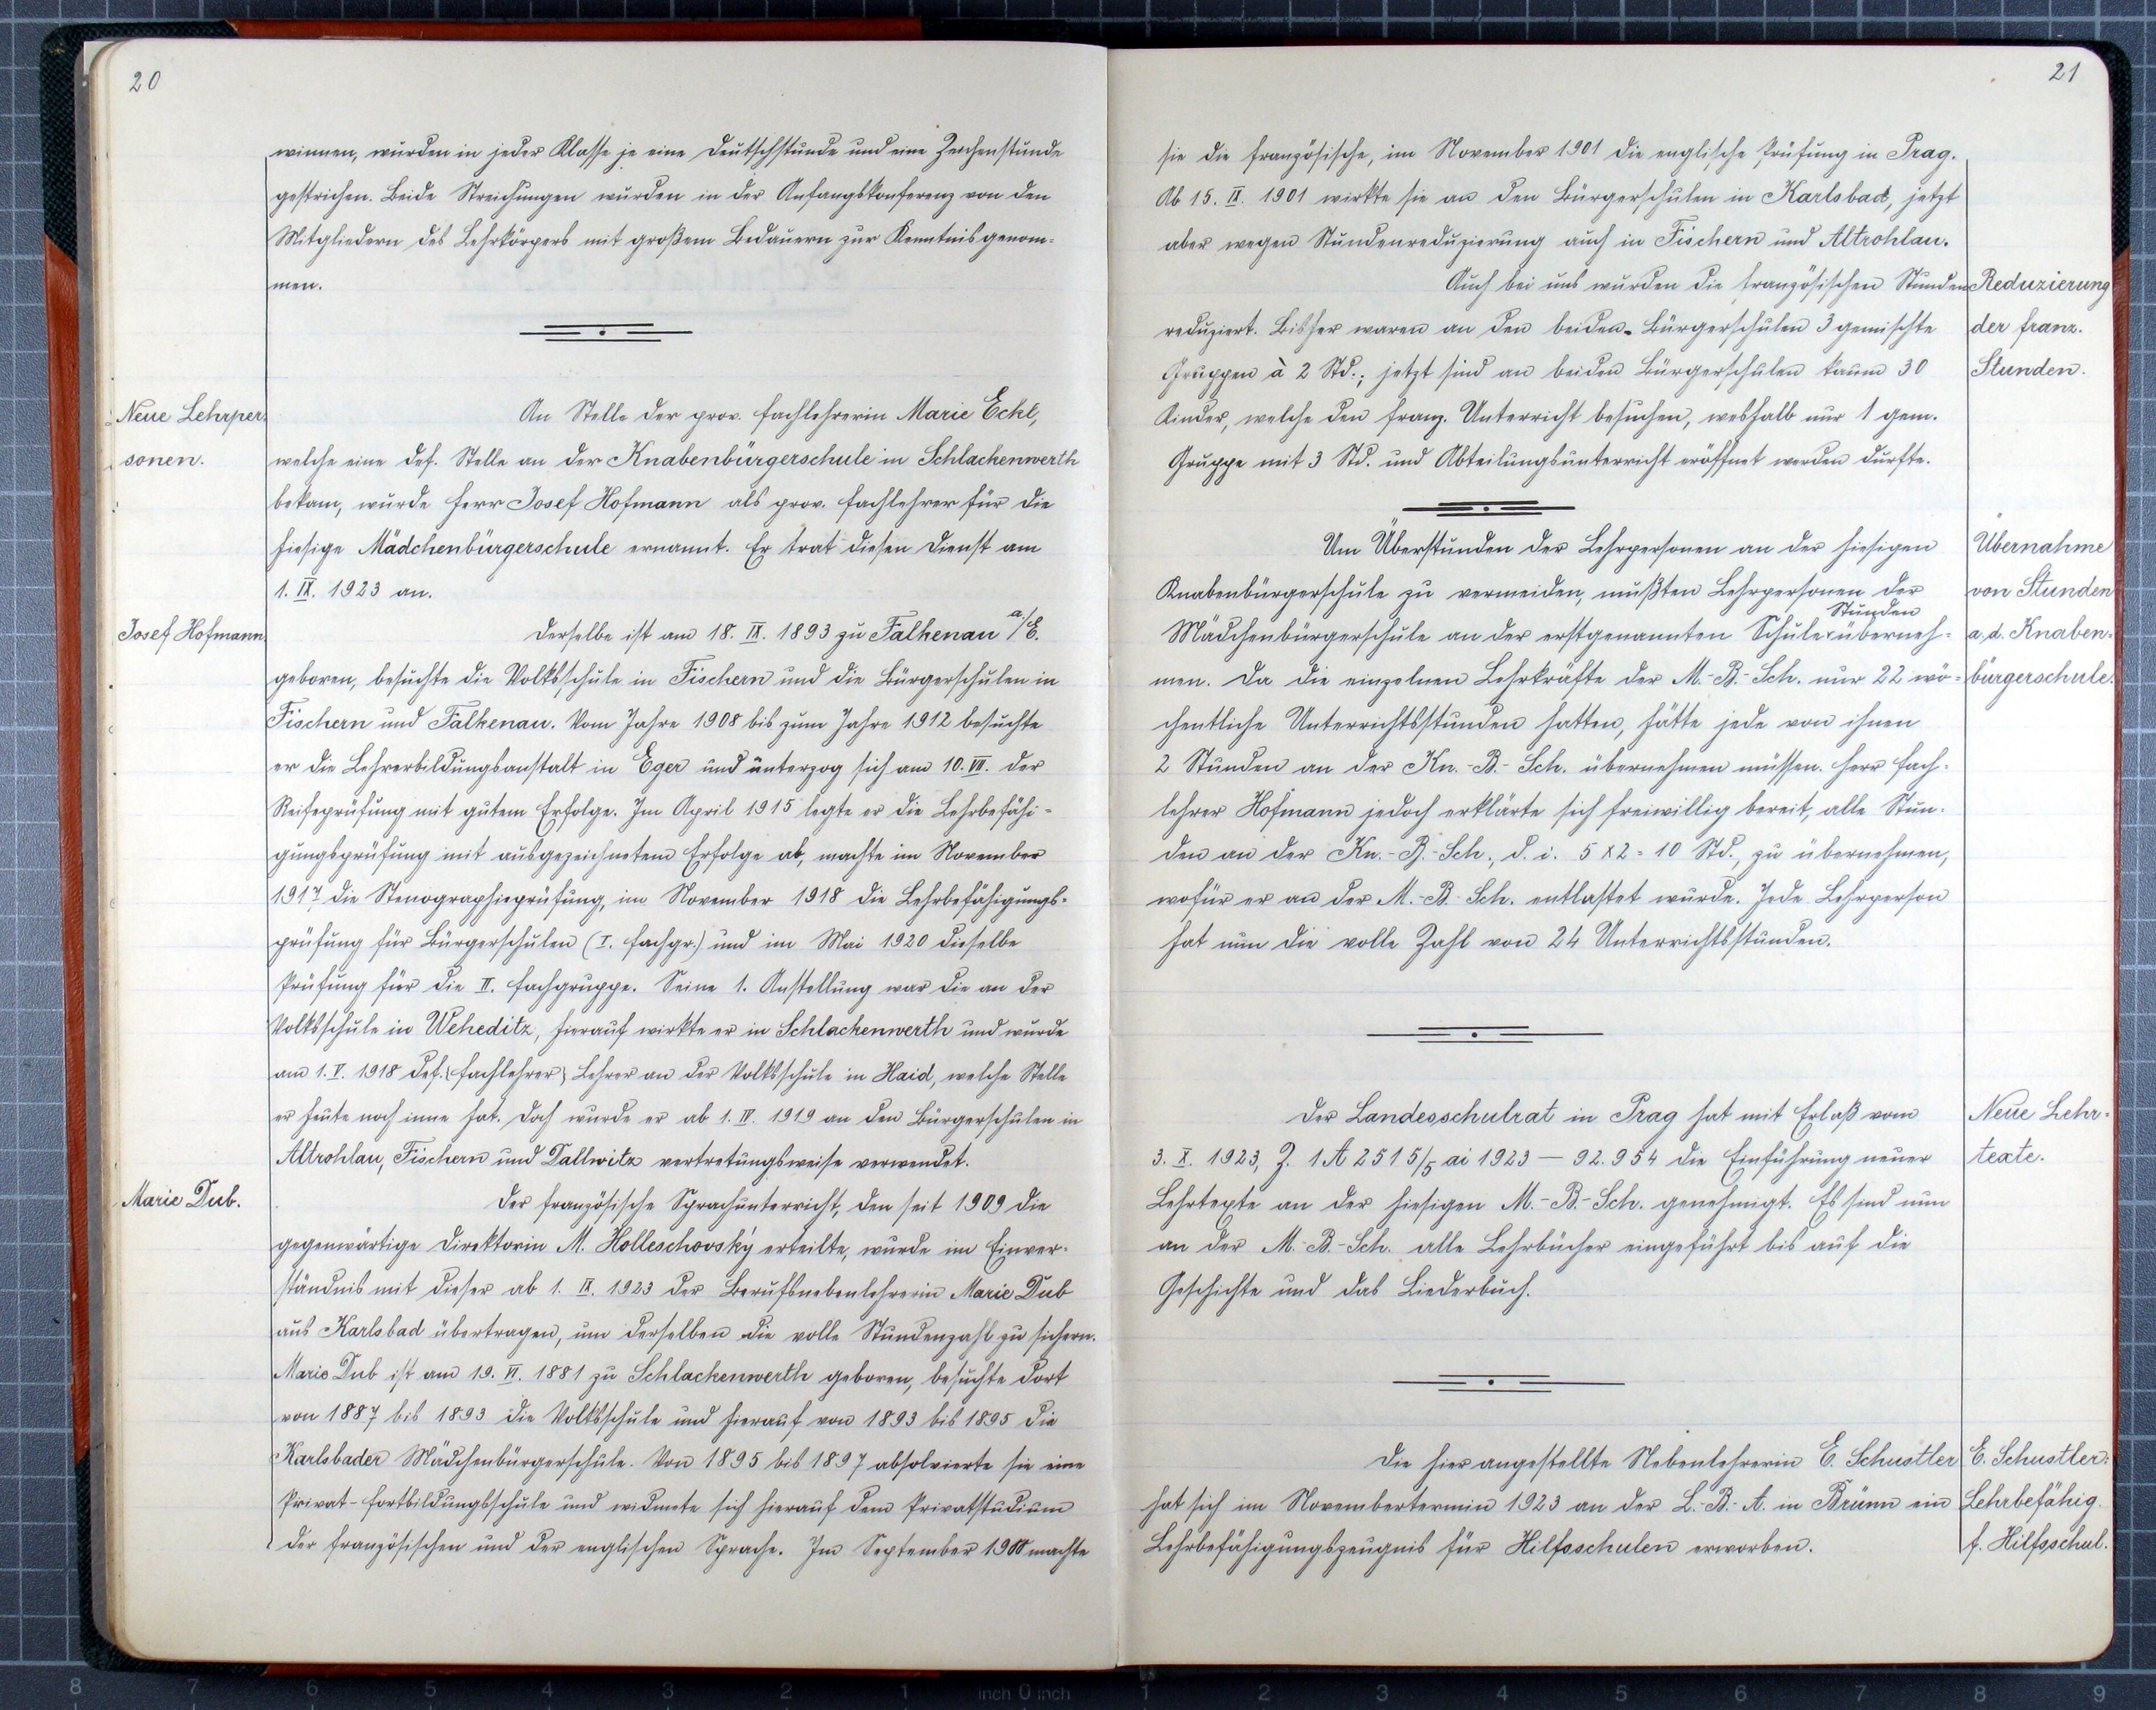 20
winnen, wurden in jeder Klasse je eine Deutschstunde und eine Zeichenstunde
gestrichen. Beide Streichungen wurden in der Anfangskonferenz von den
Mitgliedern des Lehrkörpers mit großem Bedauern zur Kenntnis genom-
men.
Neue Lehrper-
sonen.
An Stelle der prov. Fachlehrerin Marie Eckl,
welche eine def. Stelle an der Knabenbürgerschule in Schlackenwerth
bekam, wurde Herr Josef Hofmann als prov. Fachlehrer für die
hiesige Mädchenbürgerschule ernannt. Er trat diesen Dienst am
1. IX. 1923 an.
Josef Hofmann.
Derselbe ist am 18. IX. 1893 zu Falkenau a/E.
geboren, besuchte die Volksschule in Fischern und die Bürgerschulen in
Fischern und Falkenau. Vom Jahre 1908 bis zum Jahre 1912 besuchte
er die Lehrerbildungsanstalt in Eger und unterzog sich am 10. VII. der
Reifeprüfung mit gutem Erfolge. Im April 1915 legte er die Lehrbefähi-
gungsprüfung mit ausgezeichnetem Erfolge ab, machte im November
1917 die Stenographieprüfung, im November 1918 die Lehrbefähigungs-
prüfung für Bürgerschulen (I. Fachgr.) und im Mai 1920 dieselbe
Prüfung für die II. Fachgruppe. Seine 1. Anstellung war die an der
Volksschule in Weheditz, hierauf wirkte er in Schlackenwerth und wurde
am 1. V. 1918 def. (Fachlehrer) Lehrer an der Volksschule in Haid, welche Stelle
er heute noch inne hat. Doch wurde er ab 1. IV. 1919 an den Bürgerschulen in
Altrohlau, Fischern und Dallwitz vertretungsweise verwendet.
Marie Dub.
Der französische Sprachunterricht, den seit 1909 die
gegenwärtige Direktorin M. Holleschovský erteilte, wurde im Einver-
ständnis mit dieser ab 1. IX. 1923 der Berufsnebenlehrerin Marie Dub
aus Karlsbad übertragen, um derselben die volle Stundenzahl zu sichern.
Marie Dub ist am 19. VI. 1881 zu Schlackenwerth geboren, besuchte dort
von 1887 bis 1893 die Volksschule und hierauf von 1893 bis 1895 die
Karlsbader Mädchenbürgerschule. Von 1895 bis 1897 absolvierte sie eine
Privat-Fortbildungsschule und widmete sich hierauf dem Privatstudium
der französischen und der englischen Sprache. Im September 1900 machte
21
sie die französische, im November 1901 die englische Prüfung in Prag.
Ab 15. IX. 1901 wirkte sie an den Bürgerschulen in Karlsbad, jetzt
aber wegen Stundenreduzierung auch in Fischern und Altrohlau.
Auch bei uns wurden die französischen Stunden
reduziert. Bisher waren an den beiden Bürgerschulen 3 gemischte
Gruppen à 2 Std.; jetzt sind an beiden Bürgerschulen kaum 30
Kinder, welche den franz. Unterricht besuchen, weshalb nur 1 gem.
Gruppe mit 3 Std. und Abteilungsunterricht eröffnet werden durfte.
Reduzierung
der franz.
Stunden.
Um Überstunden der Lehrpersonen an der hiesigen
Knabenbürgerschule zu vermeiden, mußten Lehrpersonen der
Stunden
Mädchenbürgerschule an der erstgenannten Schule überneh-
men. Da die einzelnen Lehrkräfte der M.-B.-Sch. nur 22 wö-
chentliche Unterrichtsstunden hatten, hätte jede von ihnen
2 Stunden an der Kn.-B.-Sch. übernehmen müssen. Herr Fach-
lehrer Hofmann jedoch erklärte sich freiwillig bereit, alle Stun-
den an der Kn.-B.-Sch., d. i. 5 x 2 = 10 Std., zu übernehmen,
wofür er an der M.-B.-Sch. entlastet wurde. Jede Lehrperson
hat nun die volle Zahl von 24 Unterrichtsstunden.
Übernahme
von Stunden
a. d. Knaben-
bürgerschule.
Der Landesschulrat in Prag hat mit Erlaß vom
3. X. 1923, Z. 1 A 2515/5 ai 1923 — 92.954 die Einführung neuer
Lehrtexte an der hiesigen M.-B.-Sch. genehmigt. Es sind nun
an der M.-B.-Sch. alle Lehrbücher eingeführt bis auf die
Geschichte und das Liederbuch.
Neue Lehr-
texte.
Die hier angestellte Nebenlehrerin E. Schustler
hat sich im Novembertermin 1923 an der L.-B.-A. in Brünn ein
Lehrbefähigungszeugnis für Hilfsschulen erworben.
E. Schustler:
Lehrbefähig.
f. Hilfsschul.
8 7 6 5 4 3 2 1 inch 0 inch 1 2 3 4 5 6 7 8 9